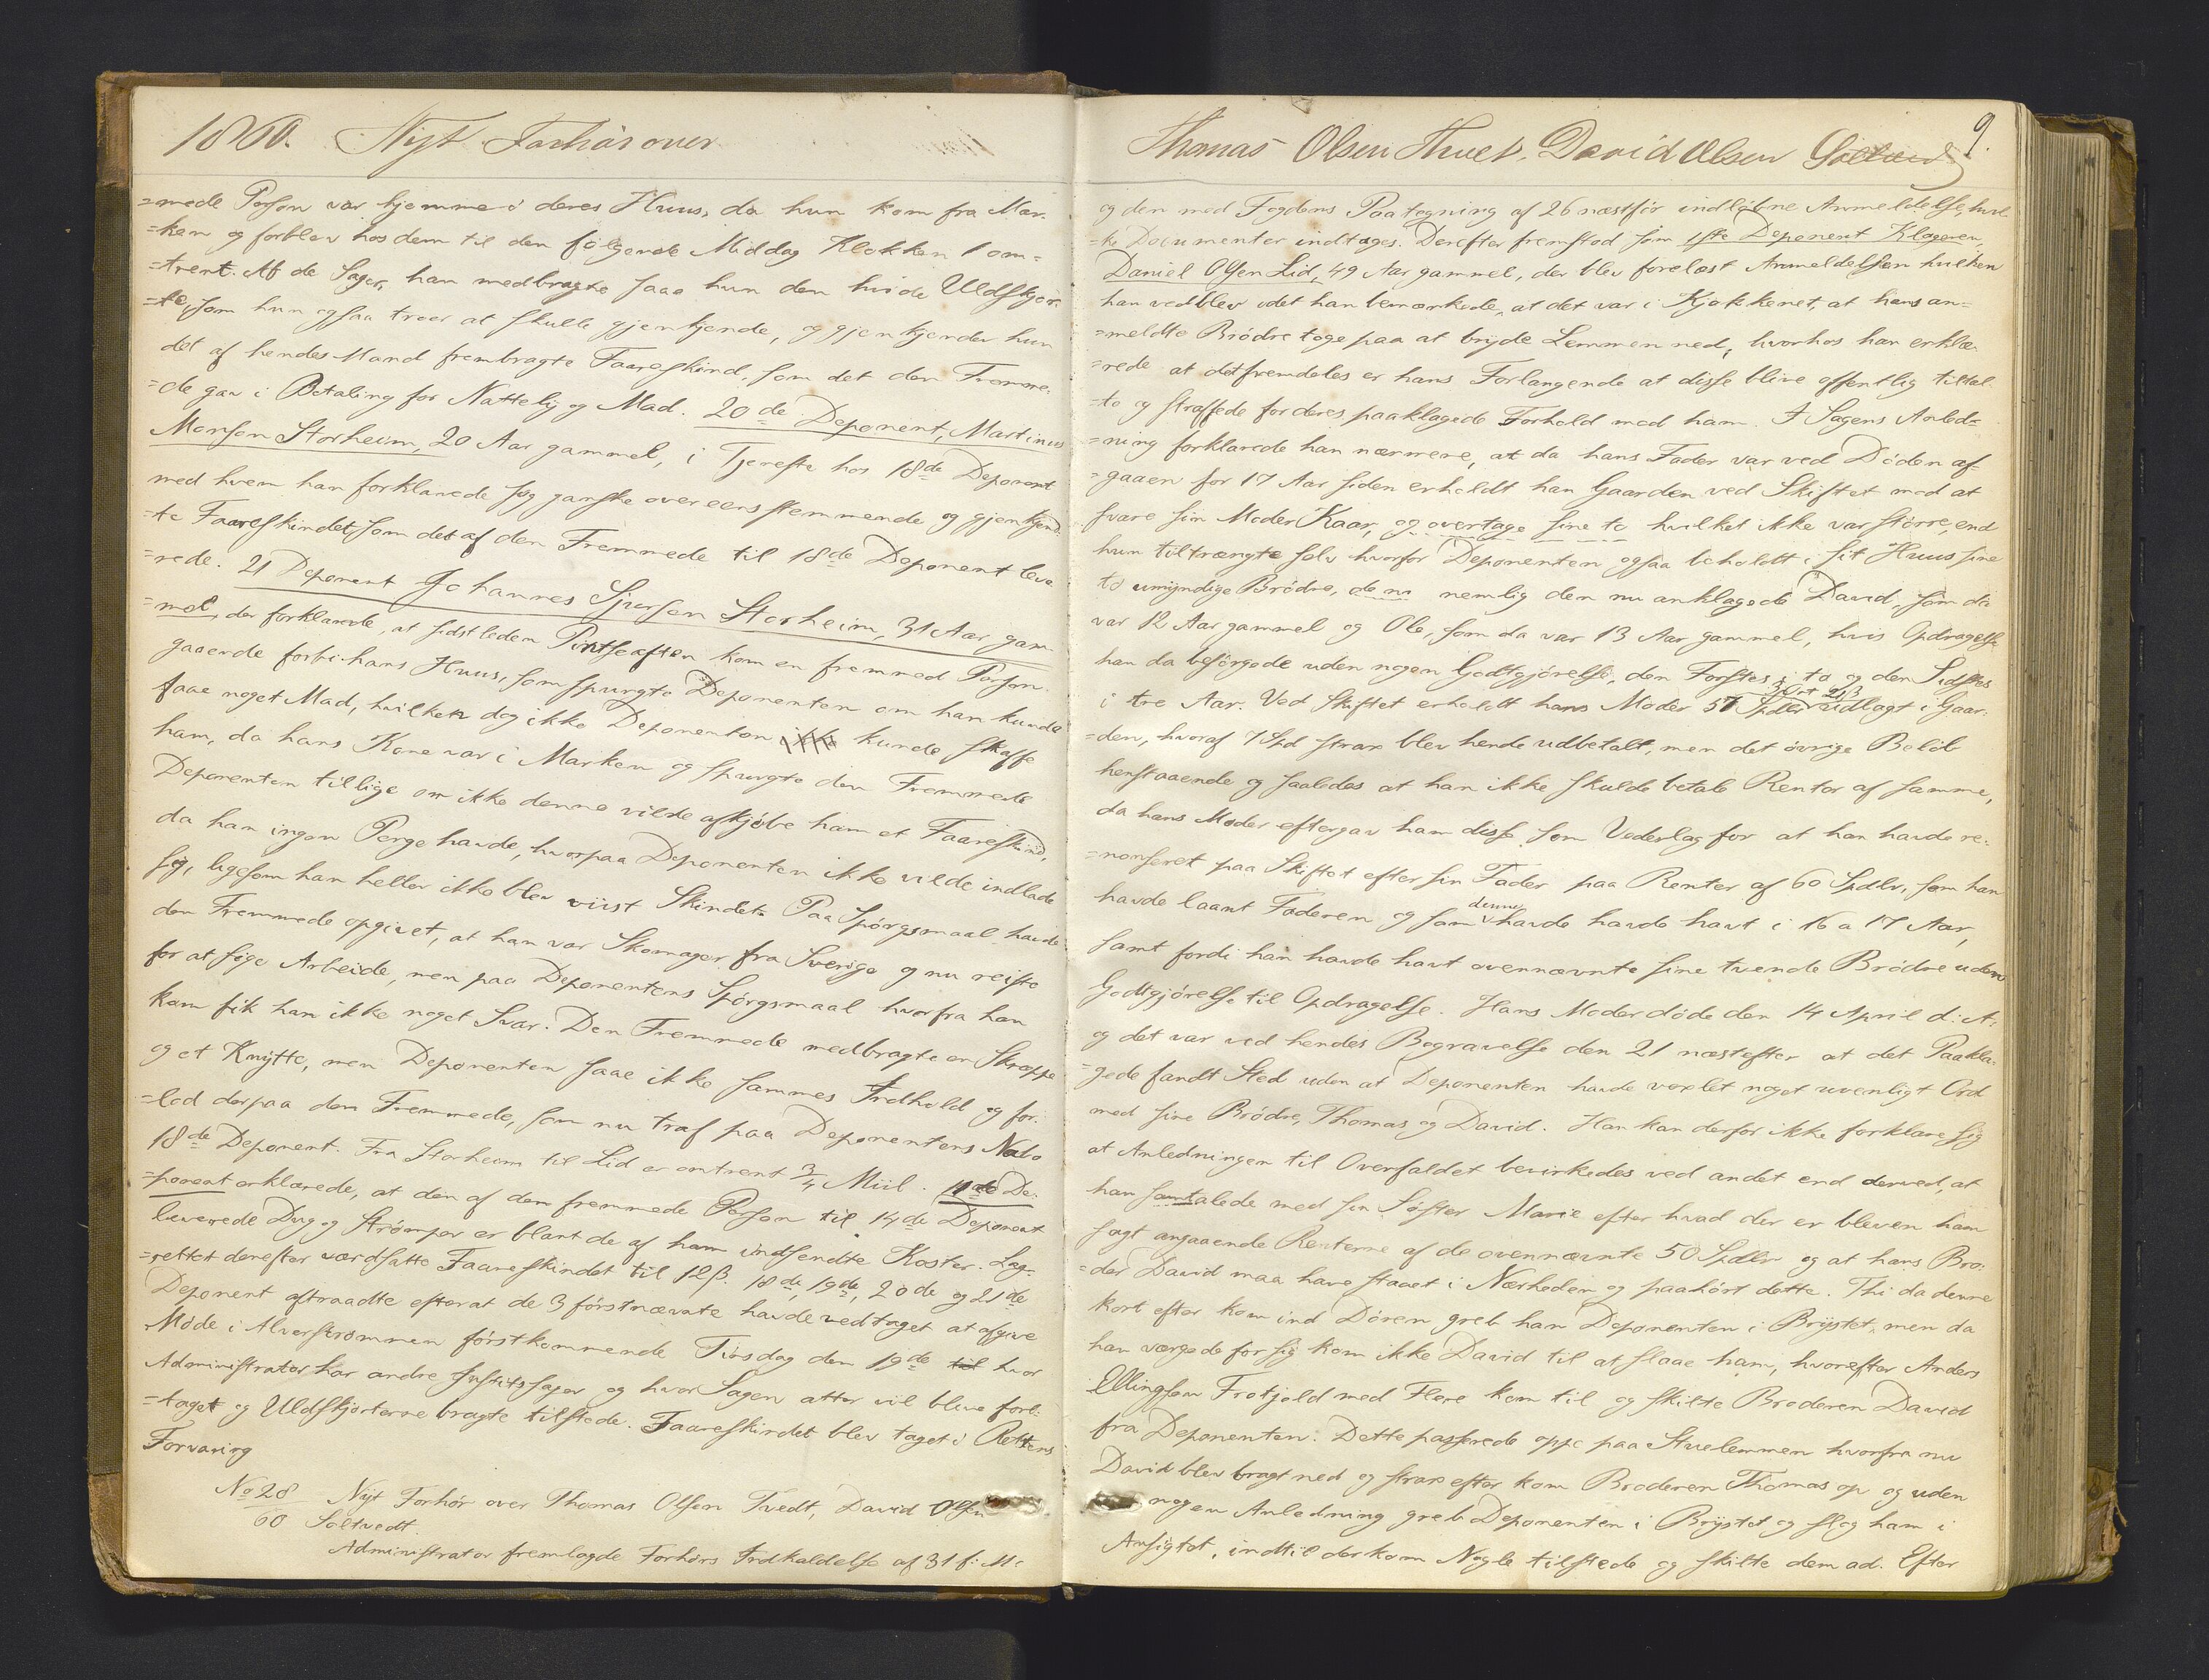 1860. Nyt Forhör over
=mede Person var hjemme i deres Huus, da hun kom fra Mar-
=ken og forblev hos dem til den fölgende Middag Klokken 1 om=
=trent. Af de Sager, han medbragte saae hun den hvide Uldskjor-
=te, som hun ogsaa troer at skulle gjenkjende, og gjenkjender hun
det af hendes Mand frembragte Faareskind, som det den Fremme-
=de gav i Betaling for Nattely og Mad. 20de Deponent, Martinus
Monsen Storheim, 20 Aar gammel, i Tjeneste hos 18de Deponent
med hvem han forklarede sig ganske overeensstemmende og gjenkjend-
=te Faareskindet som det af den Fremmede til 18de Deponent leve-
=rede. 21 Deponent Johannes Sjursen Storheim, 31 Aar gam-
=mel, der forklarede, at sidstleden Pintseaften kom en fremmed Person
gaaende forbi hans Huus, som spurgte Deponenten om han kunde
faae noget Mad, hvilken dog ikke Deponenten kunde skaffe
ham, da hans Kone var i Marken og spurgte den Fremmede
Deponenten tillige om ikke denne vilde afkjöbe ham et Faareskind,
da han ingen Penge havde, hvorpaa Deponenten ikke vilde indlade
sig, ligesom han heller ikke blev viist Skindet. Paa Spörgsmaal havde
den Fremmede opgivet, at han var Skomager fra Sverige og nu reiste
for at söge Arbeide, men paa Deponentens Spörgsmaal hvorfra han
kom fik han ikke noget Svar. Den Fremmede medbragte en Skreppe
og et Knytte, men Deponenten saae ikke sammes Indhold og for-
=lod derpaa den Fremmede, som nu traf paa Deponentens Nabo
18de Deponent. Fra Storheim til Lid er omtrent 3/4 Miil. 11te De-
=ponent erklærede, at den af den fremmede Person til 14de Deponent
leverede Dug og Strömper er blant de af ham indsendte Koster. Lag-
=rettet derefter værdsatte Faareskindet til 12 β. 18de, 19de, 20de og 21de
Deponent aftraadte efterat de 3 förstnævnte havde vedtaget at afgive
Möde i Alverströmmen förstkommende Tirsdag den 19de til hvor
Administrator har andre Justitssager og hvor Sagen atter vil blive fore-
=taget og Uldskjorterne bragte tilstede. Faareskindet blev taget i Rettens
Forvaring
No 28/60 Nyt Forhör over Thomas Olsen Tvedt, David Olsen
Soltvedt.
Administrator fremlagde Forhörs Indkaldelse af 31 f: M:
Thomas Olsen Tvedt, David Olsen Soltvedt 9.
og den med Fogdens Paategning af 26 næstför indlöbne Anmeldelse, hvil-
=ke Documenter indtages. Derefter fremstod som 1ste Deponent Klageren,
Daniel Olsen Lid, 49 Aar gammel, der blev forelæst Anmeldelsen hvilken
han vedblev idet han bemærkede, at det var i Kjökkenet, at hans an=
=meldte Brödre toge paa at bryde Lemmen ned, hvorhos han erklæ-
=rede at det fremdeles er hans Forlangende at disse blive offentlig tiltal-
=te og straffede for deres paaklagede Forhold mod ham. I Sagens Anled=
=ning forklarede han nærmere, at da hans Fader var ved Döden af-
=gaaen for 17 Aar siden erholdt han Gaarden ved Skiftet mod at
svare sin Moder Kaar, og overtage sine to hvilket ikke var större, end
hun tiltrængte selv hvorfor Deponenten ogsaa beholdt i sit Huus sine
to umyndige Brödre, de nu nemlig den nu anklagede David, som da
var 12 Aar gammel og Ole, som da var 13 Aar gammel, hvis Opdragelse
han da besörgede uden nogen Godtgjörelse, den Förstes i to og den Sidstes
i tre Aar. Ved Skiftet erholdt hans Moder 57 Spdlr 3 Ort 21 β udlagt i Gaar-
=den, hvoraf 7 Spd strax blev hende udbetalt, men det övrige Belöb
henstaaende og saaledes at han ikke skulde betale Renter af samme,
da hans Moder eftergav ham disse som Vederlag for at han havde re-
=nonseret paa Skiftet efter sin Fader paa Renter af 60 Spdlr, som han
havde laant Faderen og som denne havde havde havt i 16 a 17 Aar,
samt fordi han havde havt ovennævnte sine tvende Brödre uden
Godtgjörelse til Opdragelse. Hans Moder döde den 14 April d: A:
og det var ved hendes Begravelse den 21 næstefter at det Paakla-
=gede fandt Sted uden at Deponenten havde vexlet noget uvenligt Ord
med sine Brödre, Thomas og David. Han kan derfor ikke forklare sig
at Anledningen til Overfaldet bevirkedes ved andet end derved, at
han samtalede med sin Söster Marie efter hvad der er bleven ham
sagt angaaende Renterne af de ovennævnte 50 Spdlr og at hans Bro-
=der David maa have staaet i Nærheden og paahört dette. Thi da denne
kort efter kom ind Dören greb han Deponenten i Brystet, men da
han værgede for sig kom ikke David til at slaae ham, hvorefter Anders
Ellingsen Frotjold med Flere kom til og skilte Broderen David
fra Deponenten. Dette passerede oppe paa Stuelemmen hvorfra nu
David blev bragt ned og strax efter kom Broderen Thomas op og uden
nogen Anledning greb Deponenten i Brystet og slog ham i
Ansigtet, indtil der kom Nogle tilstede og skilte dem ad. Efter